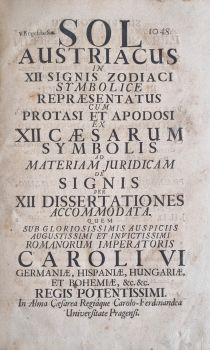 1048.
SOL
AUSTRIACUS
IN
XII SIGNIS ZODIACI
SYMBOLICE
REPRÆSENTATUS
CUM
PROTASI ET APODOSI
EX
XII CÆSARUM
SYMBOLIS
AD
MATERIAM JURIDICAM
DE
SIGNIS
PER
XII DISSERTATIONES
ACCOMMODATA.
QUEM
SUB GLORIOSISSIMIS AUSPICIIS
AUGUSTISSIMI ET INVICTISSIMI
ROMANORUM IMPERATORIS
CAROLI VI
GERMANIÆ, HISPANIÆ, HUNGARIÆ,
ET BOHEMIÆ, &c. &c.
REGIS POTENTISSIMI.
In Alma Cæsarea Regiáque Carolo-Ferdinandea
Universitate Pragensi.